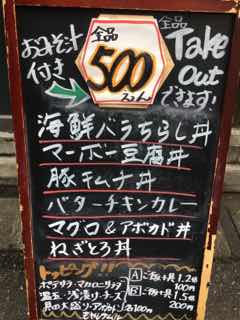 おみそ汁
付き
全品
500
えん
全品
Take
Out
できます!
海鮮バラちらし丼
マーボー豆腐丼
豚キムチ丼
バターチキンカレー
マグロ&アボカド丼
ねぎとろ丼
トッピング!!
A ごはん+具 1.2倍
100円
B ごはん+具 1.5倍
200円
ポテサラ・マカロニサラダ
温玉・
チーズ
各100円